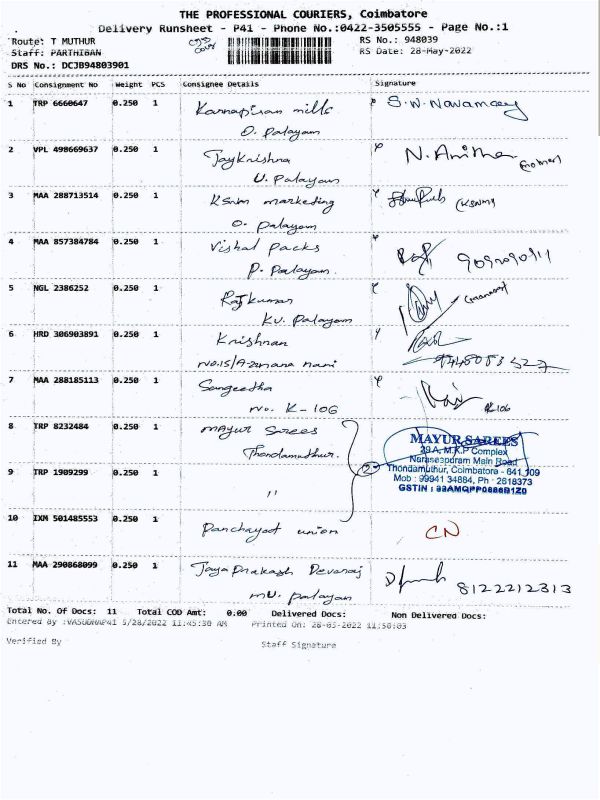 THE PROFESSIONAL COURIERS, Coimbatore
Delivery Runsheet - P41 - Phone No.:0422-3505555 - Page No.:1
Route: T MUTHUR RS No.: 948039
Staff: PARTHIBAN RS Date: 28-May-2022
DRS No.: DCJB94803901
S No Consignment No Weight PCS Consignee Details Signature
1 TRP 6660647 0.250 1 Kannapiran mills S.W. Navamaey
O. Palayam
2 VPL 498669637 0.250 1 Jaykrishna N. Anitha
U. Palayam (mother)
3 MAA 288713514 0.250 1 KSNM marketing (KSNM)
O. Palayam
4 MAA 857384784 0.250 1 Vishal Packs 9092090911
P. Palayam
5 NGL 2386252 0.250 1 Rajkumar
KU. Palayam
6 HRD 306903891 0.250 1 Krishnan
No.15/A-zamana nani 9448083527
7 MAA 288185113 0.250 1 Sangeetha
No. K-106 K106
8 TRP 8232484 0.250 1 Mayur Sarees
Thondamuthur.
MAYUR SAREES
29 A, M.K.P Complex
Naraseepuram Main Road
Thondamuthur, Coimbatore - 641 109
Mob : 99941 34884, Ph : 2618373
GSTIN : 33AMQPP0686B1Z0
2
9 TRP 1909299 0.250 1 "
10 IXM 501485553 0.250 1 Panchayat union CN
11 MAA 290868099 0.250 1 Jaya Prakash Devaraj 8122212313
MU. Palayam
Total No. Of Docs: 11 Total COD Amt: 0.00 Delivered Docs: Non Delivered Docs:
Entered By :VASUDHAP41 5/28/2022 11:45:30 AM Printed On: 28-05-2022 11:50:03
Verified By Staff Signature